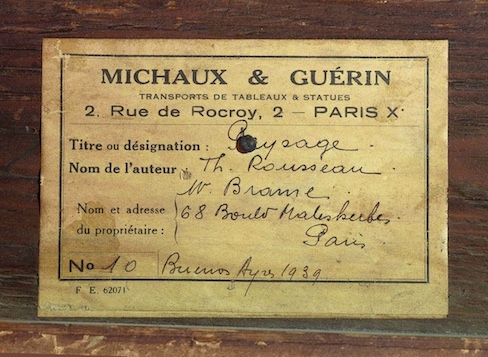 MICHAUX & GUÉRIN
TRANSPORTS DE TABLEAUX & STATUES
2. Rue de Rocroy, 2 — PARIS X.
Titre ou désignation : Paysage.
Nom de l'auteur : Th. Rousseau.
Mr. Brame
Nom et adresse
du propriétaire :
68 Bould Malesherbes.
Paris
No 10 Buenos Ayres 1939
F. E. 62071